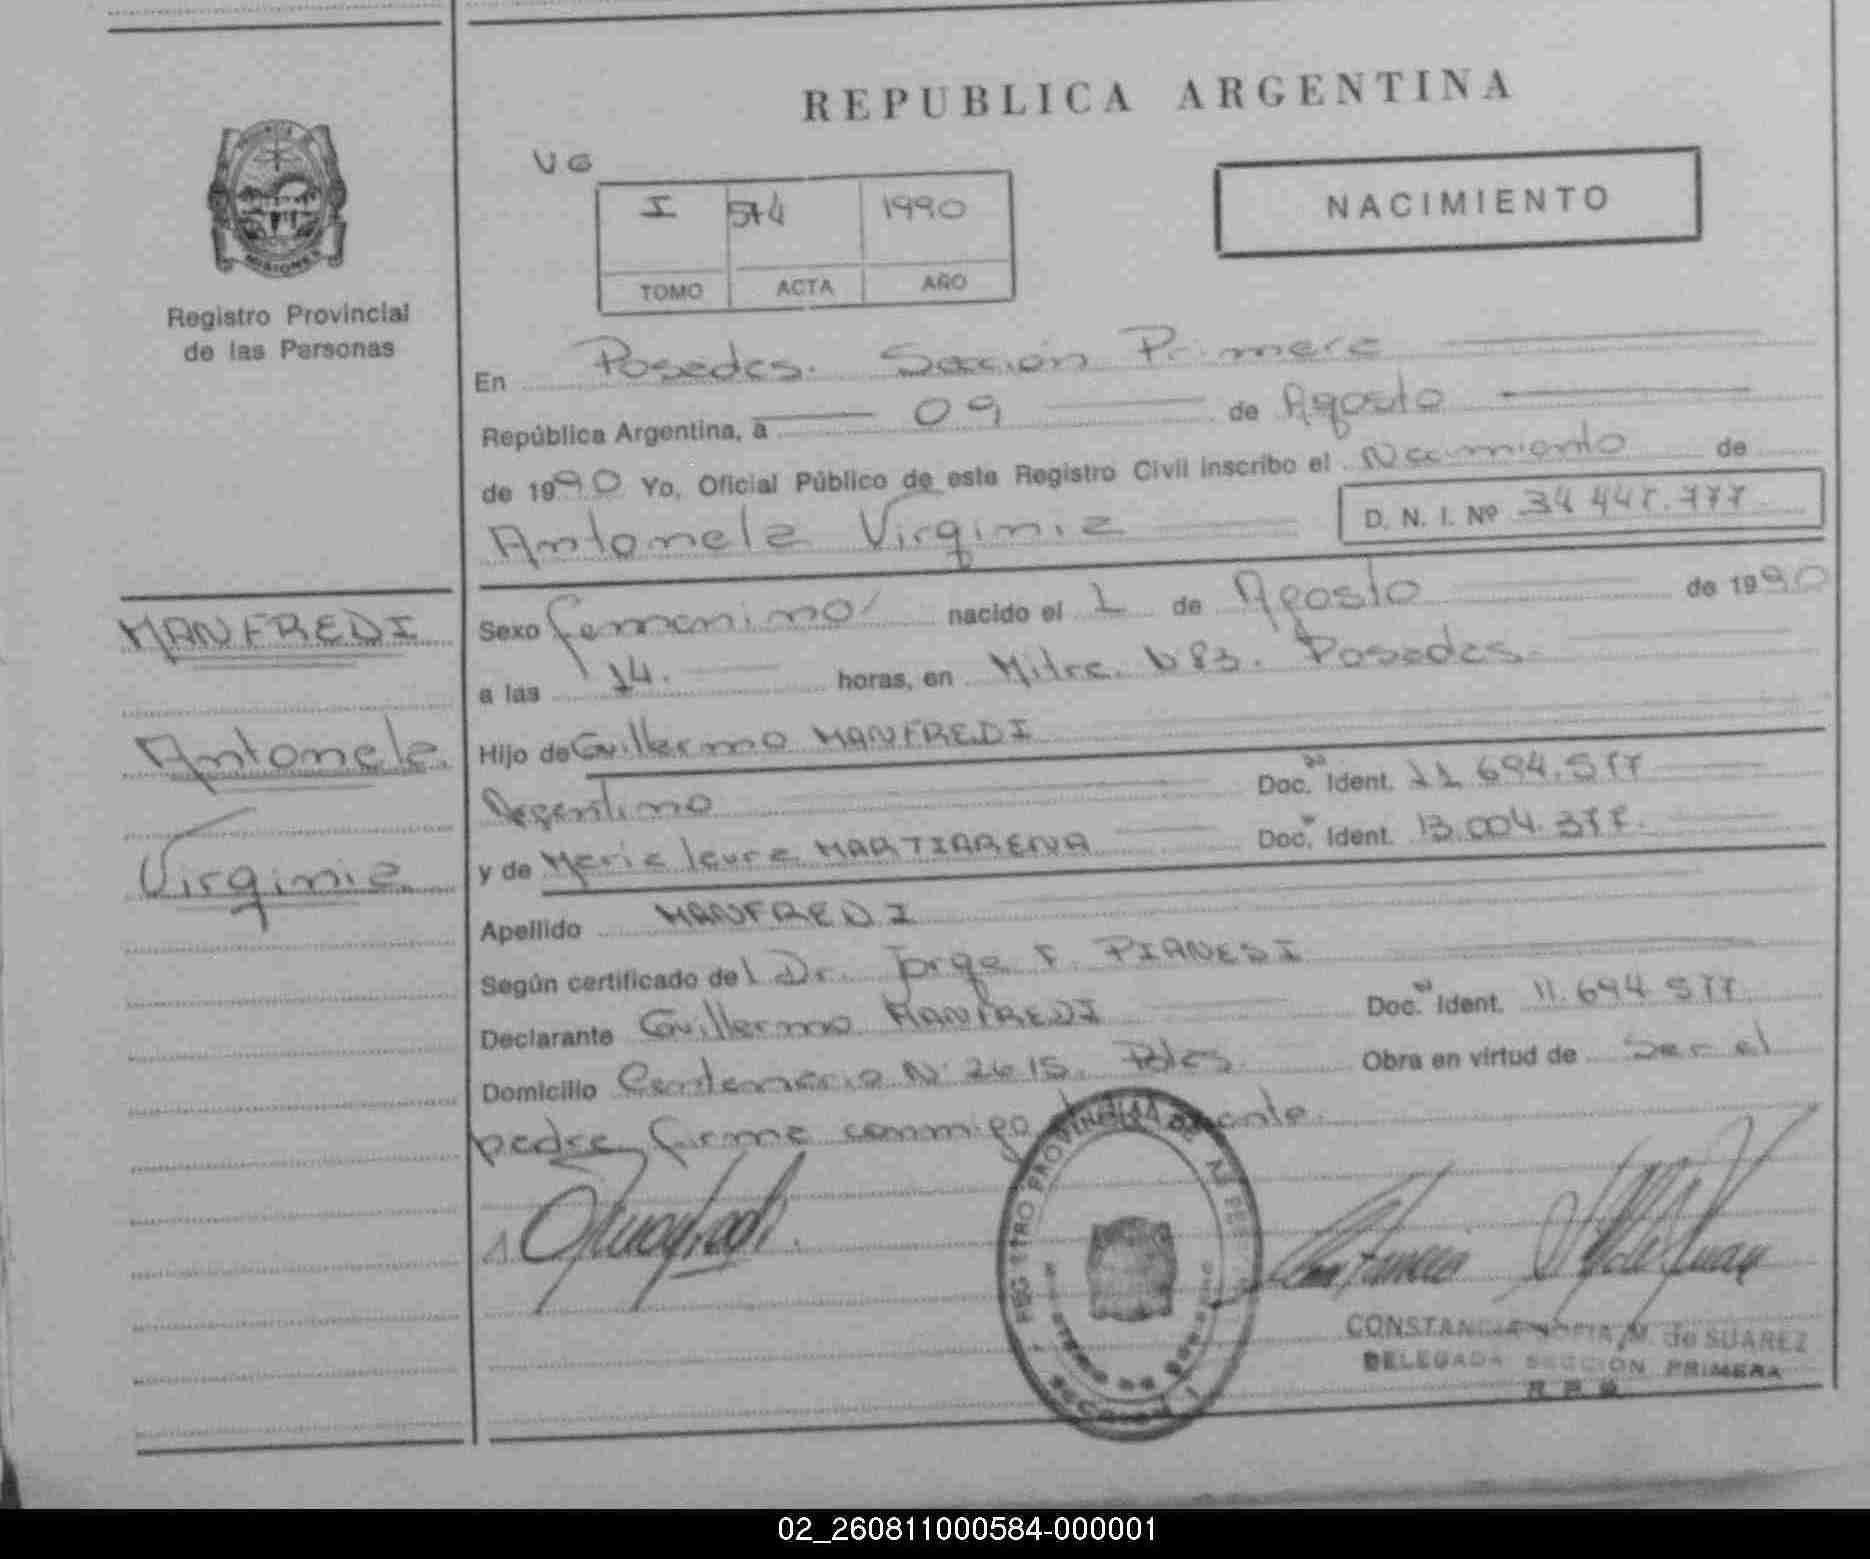 REPUBLICA ARGENTINA
VG
I 574 1990
TOMO ACTA AÑO
NACIMIENTO
MISIONES
Registro Provincial
de las Personas
En Posadas. Sección Primera
República Argentina, a 09 de Agosto
de 1990 Yo, Oficial Público de este Registro Civil inscribo el Nacimiento de
Antonela Virginia D. N. I. Nº 34 447.777
MANFREDI
Antonela
Virginia
Sexo femenino nacido el 1 de Agosto de 1990
a las 14. horas, en Mitre Posadas.
Hijo de Guillermo MANFREDI
Argentino Doc. Ident. 11.694.577
y de Maria laura MARTIARENA Doc. Ident. 13.004.377.
Apellido MANFREDI
Según certificado del Dr. Jorge F. PIANESI
Declarante Guillermo MANFREDI Doc. Ident. 11.694 577
Domicilio Centenario N 2615. Pdas. Obra en virtud de Ser el
padre firma conmigo
REGISTRO PROVINCIAL DE
CONSTANCIA SOFIA M. de SUAREZ
DELEGADA SECCION PRIMERA
02_260811000584-000001